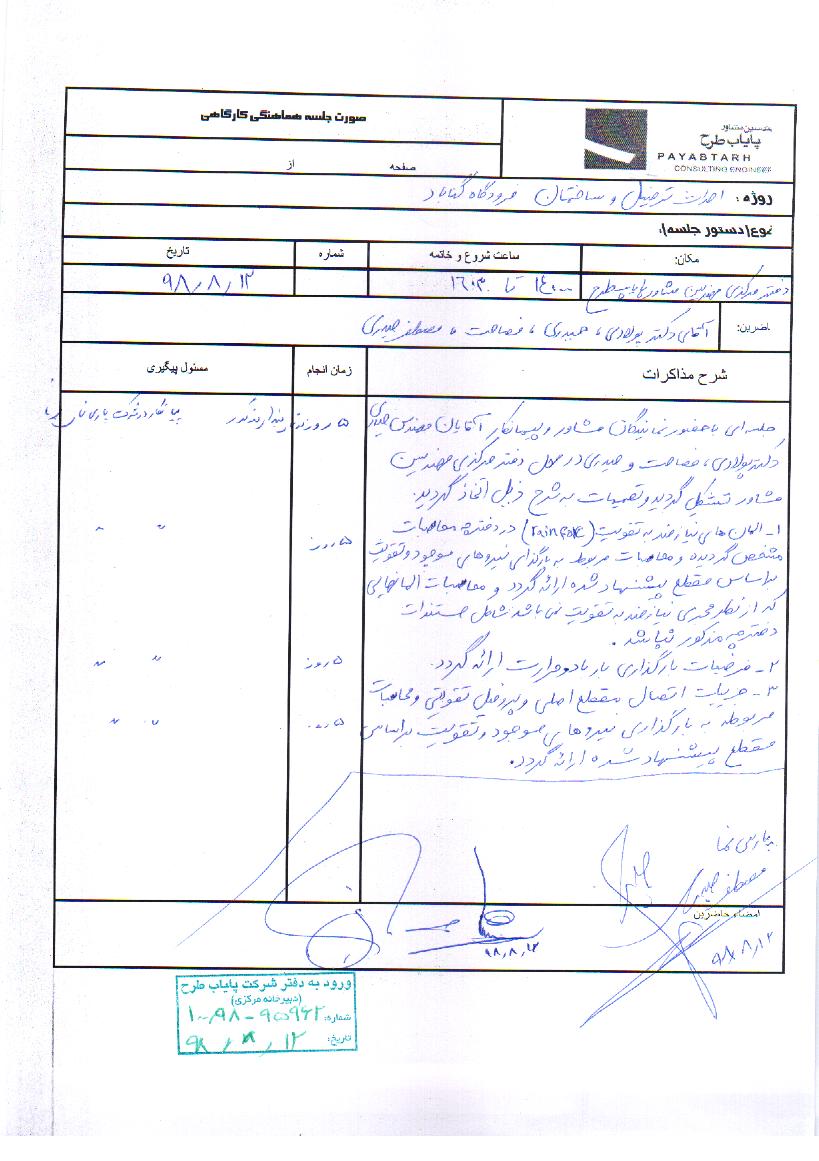 صورت جلسه هماهنگی کارگاهی
مهندسین مشاور
پایاب طرح
PAYABTARH
CONSULTING ENGINEER
صفحه از
روژه : احداث ترمینال و ساختمان فرودگاه گناباد
نوع/دستور جلسه:
مکان: ساعت شروع و خاتمه شماره تاریخ
دفتر مرکزی مهندسین مشاور پایاب طرح ۱۴:۰۰ تا ۱۶:۳۰ ۹۸/۸/۱۲
اضرین: آقای دکتر پولادی ، حیدری ، فصاحت ، مصطفی حیدری
شرح مذاکرات زمان انجام مسئول پیگیری
جلسه ای با حضور نمایندگان مشاور و پیمانکار آقایان مهندس حیدری ۵ روز
دکتر پولادی ، فصاحت و حیدری در محل دفتر مرکزی مهندسین
مشاور تشکیل گردید و تصمیمات به شرح ذیل اتخاذ گردید.
۱- المان های نیازمند به تقویت در دفترچه محاسبات ۵ روز " "
مشخص گردیده و محاسبات مربوط به بارگذای نیروهای موجود و تقویت
براساس مقطع پیشنهاد شده ارائه گردد و محاسبات المانهایی
که از نظر مجری نیازمند به تقویت نمی باشد شامل مستندات
دفترچه مذکور نباشد .
۲- فرضیات بارگذاری بار باد و حرارت ارائه گردد. ۵ روز " "
۳- جزییات اتصال مقطع اصلی و پروفیل تقویتی و محاسبات
مربوطه به بارگذاری نیروهای موجود و تقویت براساس ۵ روز " "
مقطع پیشنهاد شده ارائه گردد.
پارسی نما
مصطفی حیدری
امضاء حاضرین
۹۸/۸/۱۲
۹۸/۸/۱۲
ورود به دفتر شرکت پایاب طرح
(دبیرخانه مرکزی)
شماره:
تاریخ: ۹۸/۸/۱۲